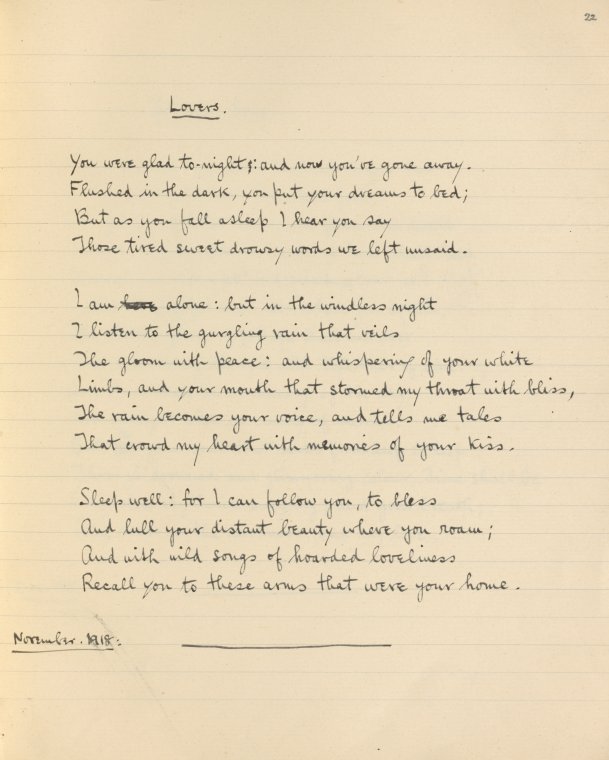 22
Lovers.
You were glad to-night: and now you've gone away.
Flushed in the dark, you put your dreams to bed;
But as you fall asleep I hear you say
Those tired sweet drowsy words we left unsaid.
I am here alone: but in the windless night
I listen to the gurgling rain that veils
The gloom with peace: and whispering of your white
Limbs, and your mouth that stormed my throat with bliss,
The rain becomes your voice, and tells me tales
That crowd my heart with memories of your kiss.
Sleep well: for I can follow you, to bless
And lull your distant beauty where you roam;
And with wild songs of hoarded loveliness
Recall you to these arms that were your home.
November. 1918: